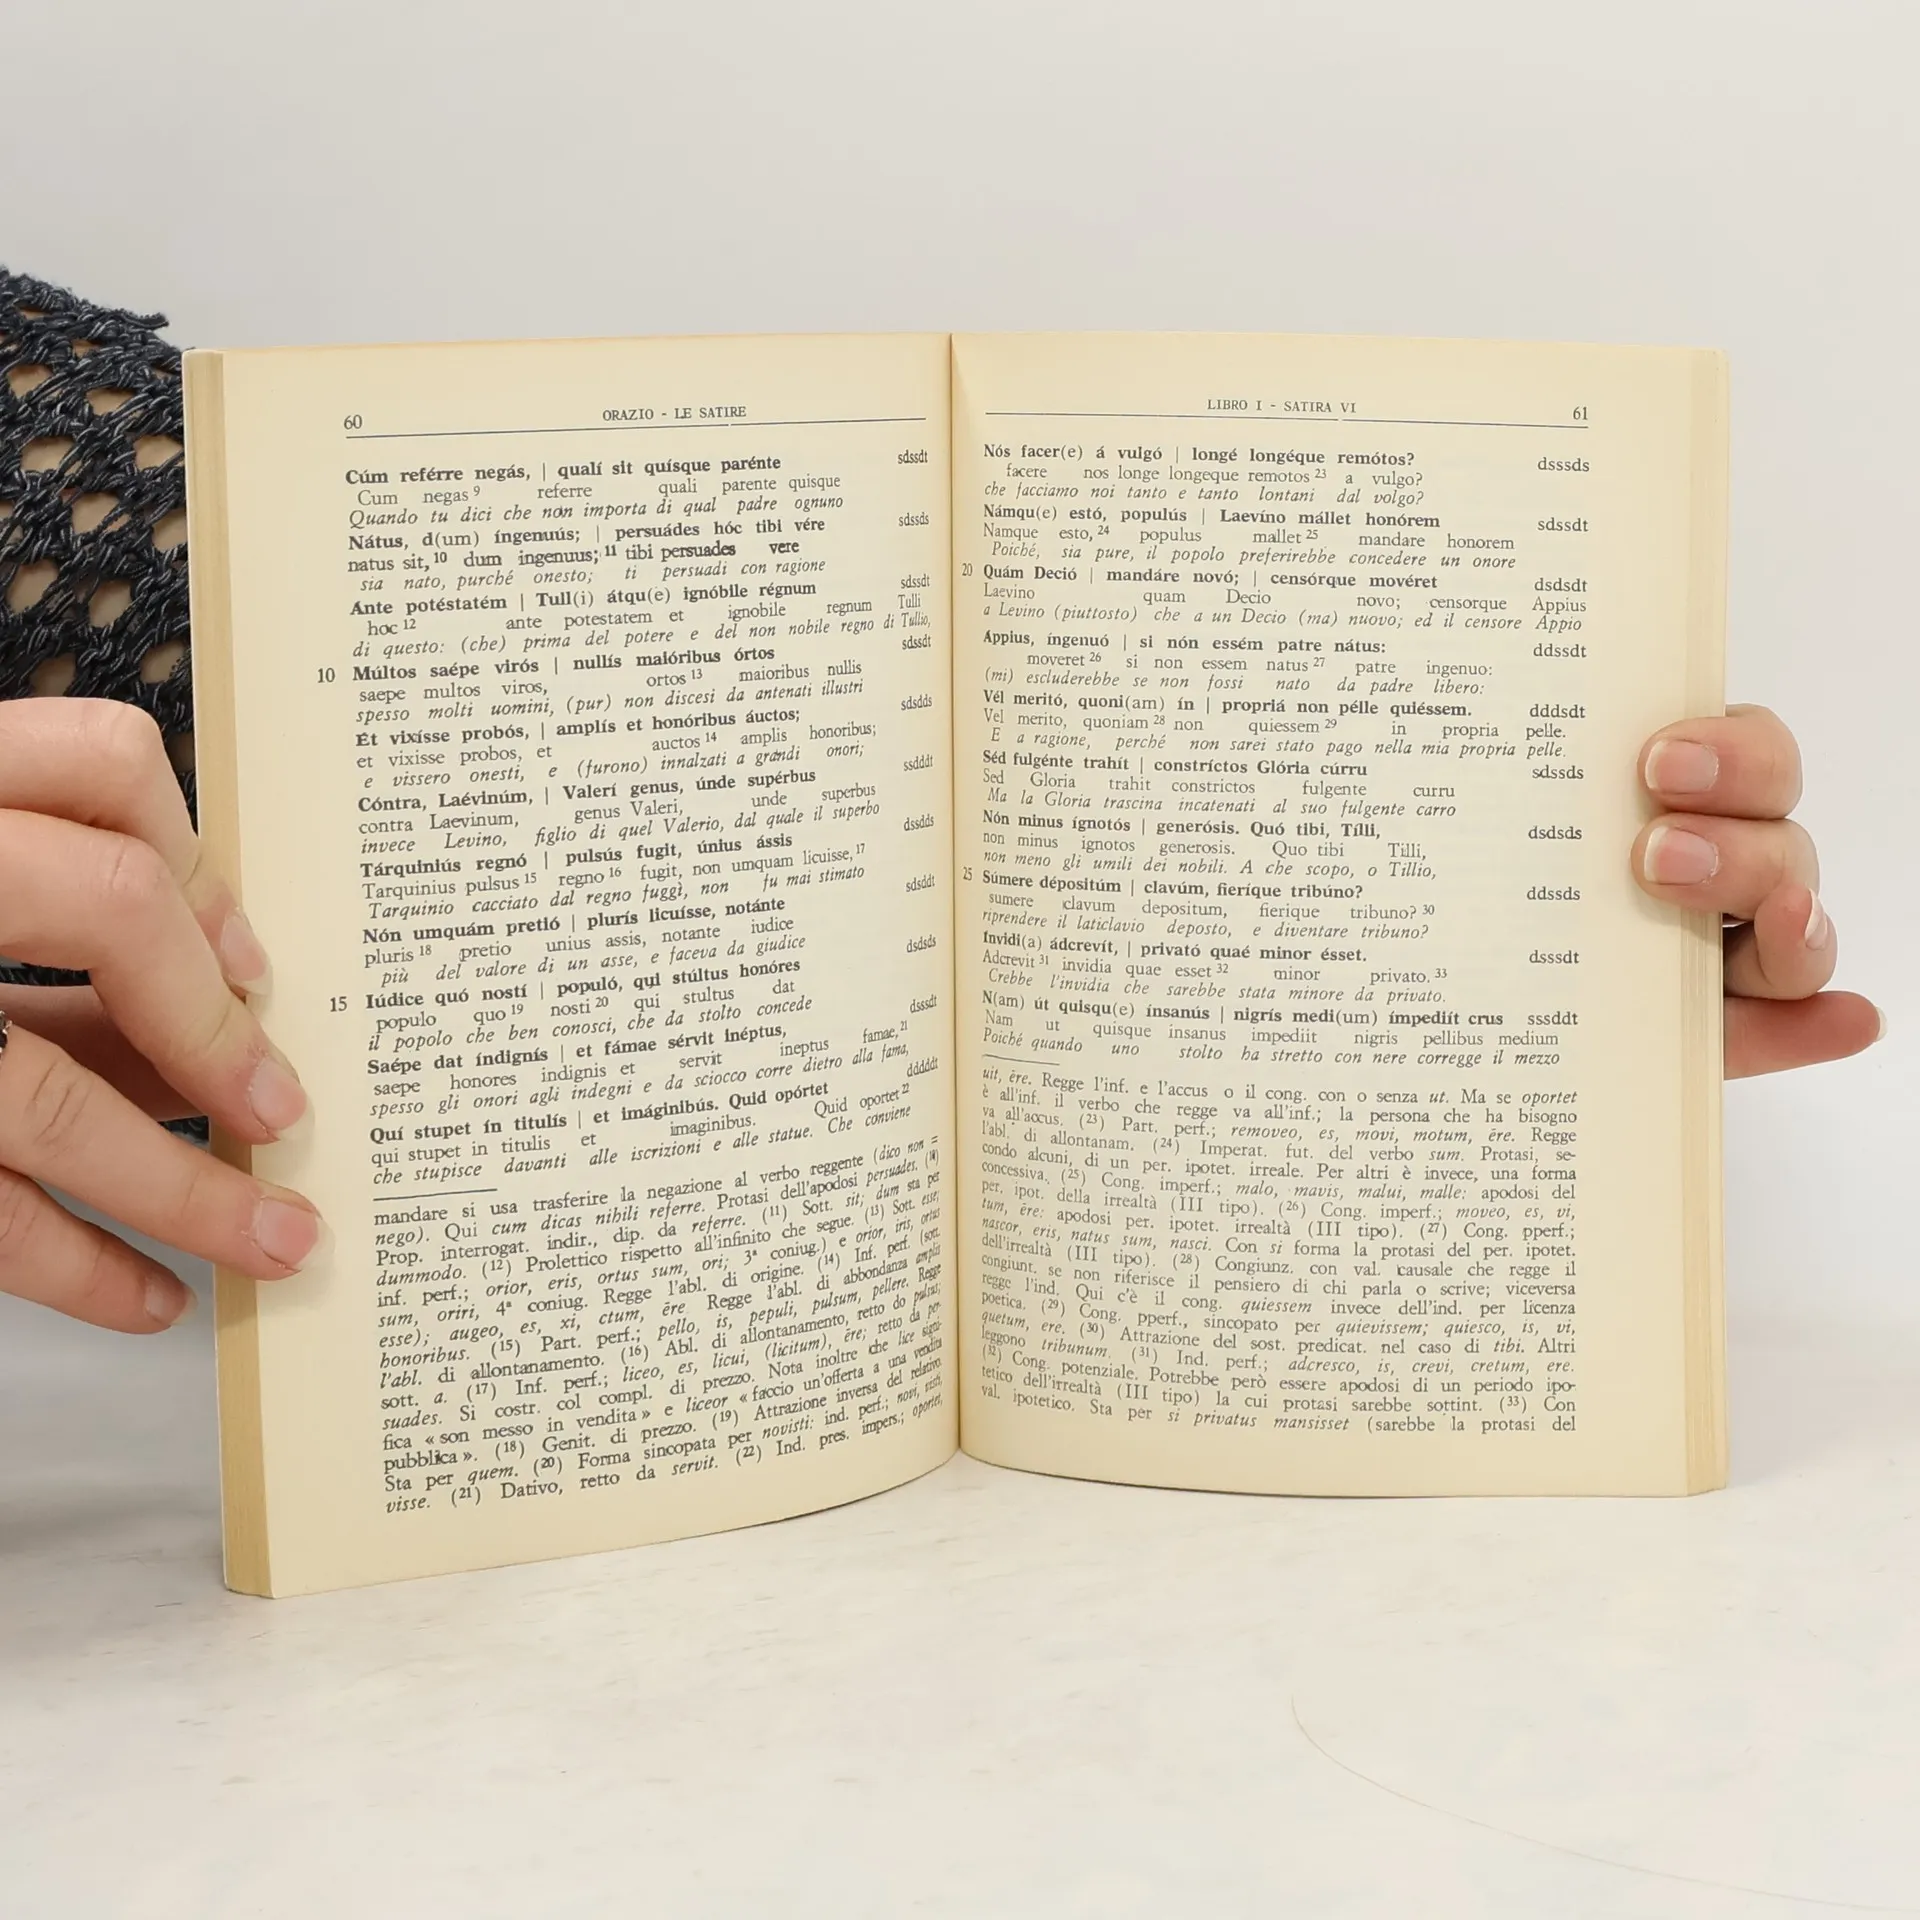 60
ORAZIO - LE SATIRE
Cúm reférre negás, | qualí sit quísque parénte sdssdt
Cum negas 9 referre quali parente quisque
Quando tu dici che non importa di qual padre ognuno
Nátus, d(um) íngenuús; | persuádes hóc tibi vére sdssds
natus sit, 10 dum ingenuus; 11 tibi persuades vere
sia nato, purché onesto; ti persuadi con ragione
Ante potéstatém | Tull(i) átqu(e) ignóbile régnum sdssdt
hoc 12 ante potestatem et ignobile regnum Tulli
di questo: (che) prima del potere e del non nobile regno di Tullio,
10 Múltos saépe virós | nullís maióribus órtos sdssdt
saepe multos viros, ortos 13 maioribus nullis
spesso molti uomini, (pur) non discesi da antenati illustri
Ét vixísse probós, | amplís et honóribus áuctos; sdsdds
et vixisse probos, et auctos 14 amplis honoribus;
e vissero onesti, e (furono) innalzati a grandi onori;
Cóntra, Laévinúm, | Valerí genus, únde supérbus ssdddt
contra Laevinum, genus Valeri, unde superbus
invece Levino, figlio di quel Valerio, dal quale il superbo
Tárquiniús regnó | pulsús fugit, únius ássis dssdds
Tarquinius pulsus 15 regno 16 fugit, non umquam licuisse, 17
Tarquinio cacciato dal regno fuggì, non fu mai stimato
Nón umquám pretió | plurís licuísse, notánte sdsddt
pluris 18 pretio unius assis, notante iudice
più del valore di un asse, e faceva da giudice
15 Iúdice quó ností | populó, quí stúltus honóres dsdsds
populo quo 19 nosti 20 qui stultus dat
il popolo che ben conosci, che da stolto concede
Saépe dat índignís | et fámae sérvit inéptus, dsssdt
saepe honores indignis et servit ineptus famae, 21
spesso gli onori agli indegni e da sciocco corre dietro alla fama,
Quí stupet ín titulís | et imáginibús. Quid opórtet dddddt
qui stupet in titulis et imaginibus. Quid oportet 22
che stupisce davanti alle iscrizioni e alle statue. Che conviene
mandare si usa trasferire la negazione al verbo reggente (dico non =
nego). Qui cum dicas nihili referre. Protasi dell'apodosi persuades. (10)
Prop. interrogat. indir., dip. da referre. (11) Sott. sit; dum sta per
dummodo. (12) Prolettico rispetto all'infinito che segue. (13) Sott. esse;
inf. perf.; orior, eris, ortus sum, ori; 3ª coniug.) e orior, iris, ortus
sum, oriri, 4ª coniug. Regge l'abl. di origine. (14) Inf. perf. (sott.
esse); augeo, es, xi, ctum, ēre. Regge l'abl. di abbondanza amplis
honoribus. (15) Part. perf.; pello, is, pepuli, pulsum, pellere. Regge
l'abl. di allontanamento. (16) Abl. di allontanamento, retto do pulsus;
sott. a. (17) Inf. perf.; liceo, es, licui, (licitum), ēre; retto da per-
suades. Si costr. col compl. di prezzo. Nota inoltre che lice signi-
fica « son messo in vendita » e liceor « faccio un'offerta a una vendita
pubblica ». (18) Genit. di prezzo. (19) Attrazione inversa del relativo.
Sta per quem. (20) Forma sincopata per novisti: ind. perf.; novi, visti,
visse. (21) Dativo, retto da servit. (22) Ind. pres. impers.; oportet,
LIBRO I - SATIRA VI
61
Nós facer(e) á vulgó | longé longéque remótos? dsssds
facere nos longe longeque remotos 23 a vulgo?
che facciamo noi tanto e tanto lontani dal volgo?
Námqu(e) estó, populús | Laevíno mállet honórem sdssdt
Namque esto, 24 populus mallet 25 mandare honorem
Poiché, sia pure, il popolo preferirebbe concedere un onore
20 Quám Deció | mandáre novó; | censórque movéret dsdsdt
Laevino quam Decio novo; censorque Appius
a Levino (piuttosto) che a un Decio (ma) nuovo; ed il censore Appio
Appius, íngenuó | si nón essém patre nátus: ddssdt
moveret 26 si non essem natus 27 patre ingenuo:
(mi) escluderebbe se non fossi nato da padre libero:
Vél meritó, quoni(am) ín | propriá non pélle quiéssem. dddsdt
Vel merito, quoniam 28 non quiessem 29 in propria pelle.
E a ragione, perché non sarei stato pago nella mia propria pelle.
Séd fulgénte trahít | constríctos Glória cúrru sdssds
Sed Gloria trahit constrictos fulgente curru
Ma la Gloria trascina incatenati al suo fulgente carro
Nón minus ígnotós | generósis. Quó tibi, Tílli, dsdsds
non minus ignotos generosis. Quo tibi Tilli,
non meno gli umili dei nobili. A che scopo, o Tillio,
25 Súmere dépositúm | clavúm, fieríque tribúno? ddssds
sumere clavum depositum, fierique tribuno? 30
riprendere il laticlavio deposto, e diventare tribuno?
Ínvidi(a) ádcrevít, | privató quaé minor ésset. dsssdt
Adcrevit 31 invidia quae esset 32 minor privato. 33
Crebbe l'invidia che sarebbe stata minore da privato.
N(am) út quisqu(e) ínsanús | nigrís medi(um) ímpediít crus sssddt
Nam ut quisque insanus impediit nigris pellibus medium
Poiché quando uno stolto ha stretto con nere corregge il mezzo
uit, ēre. Regge l'inf. e l'accus o il cong. con o senza ut. Ma se oportet
è all'inf. il verbo che regge va all'inf.; la persona che ha bisogno
va all'accus. (23) Part. perf.; removeo, es, movi, motum, ēre. Regge
l'abl. di allontanam. (24) Imperat. fut. del verbo sum. Protasi, se-
condo alcuni, di un per. ipotet. irreale. Per altri è invece, una forma
concessiva. (25) Cong. imperf.; malo, mavis, malui, malle: apodosi del
per. ipot. della irrealtà (III tipo). (26) Cong. imperf.; moveo, es, vi,
tum, ēre: apodosi per. ipotet. irrealtà (III tipo). (27) Cong. pperf.;
nascor, eris, natus sum, nasci. Con si forma la protasi del per. ipotet.
dell'irrealtà (III tipo). (28) Congiunz. con val. causale che regge il
congiunt. se non riferisce il pensiero di chi parla o scrive; viceversa
regge l'ind. Qui c'è il cong. quiessem invece dell'ind. per licenza
poetica. (29) Cong. pperf., sincopato per quievissem; quiesco, is, vi,
quetum, ere. (30) Attrazione del sost. predicat. nel caso di tibi. Altri
leggono tribunum. (31) Ind. perf.; adcresco, is, crevi, cretum, ere.
(32) Cong. potenziale. Potrebbe però essere apodosi di un periodo ipo-
tetico dell'irrealtà (III tipo) la cui protasi sarebbe sottint. (33) Con
val. ipotetico. Sta per si privatus mansisset (sarebbe la protasi del